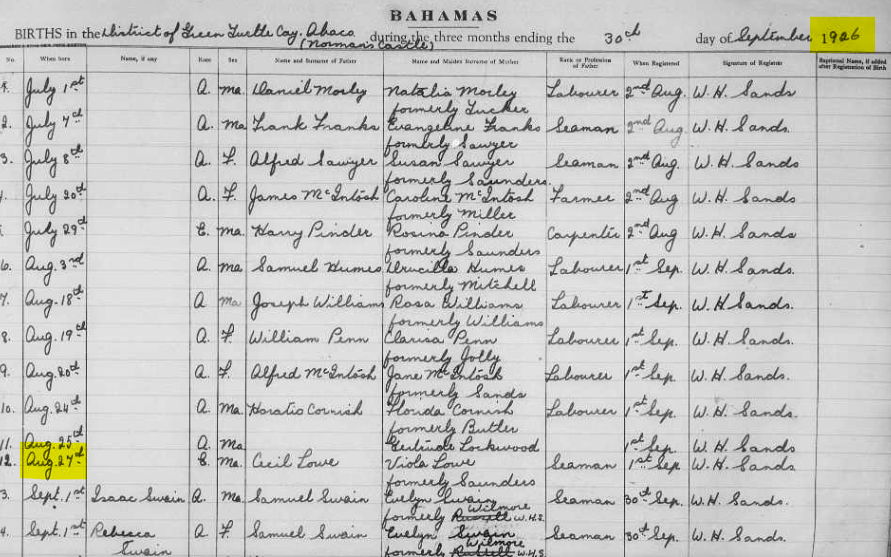 BAHAMAS
BIRTHS in the District of Green Turtle Cay, Abaco during the three months ending the 30th day of September 1926
(Norman's Castle)
No. When born Name, if any Race Sex Name and Surname of Father Name and Maiden Surname of Mother Rank or Profession of Father When Registered Signature of Registrar Baptismal Name, if added after Registration of Birth
1. July 1st A. Ma. Daniel Morley Natalia Morley Labourer 2nd Aug. W. H. Sands
formerly Tucker
2. July 4th A. Ma Frank Franks Evangeline Franks Seaman 2nd Aug W. H. Sands.
formerly Sawyer
3. July 8th A. F. Alfred Sawyer Susan Sawyer Seaman 2nd Aug. W. H. Sands
formerly Saunders.
4. July 20th A. F. James McIntosh Caroline McIntosh Farmer 2nd Aug. W. H. Sands
formerly Miller
July 29th E. Ma. Harry Pinder Rosina Pinder Carpenter 2nd Aug W. H. Sands
formerly Saunders
6. Aug. 3rd A. Ma. Samuel Humes Drucilla Humes Labourer 1st Sep. W. H. Sands.
formerly Mitchell
7. Aug. 18th A Ma Joseph Williams Rosa Williams Labourer 1st Sep. W. H. Sands.
formerly Williams
8. Aug. 19th A. F. William Penn Clarisa Penn Labourer 1st Sep. W. H. Sands.
formerly Jolly
9. Aug. 20th A. F. Alfred McIntosh Jane McIntosh Labourer 1st Sep. W. H. Sands.
formerly Sands
10. Aug. 24th A. Ma. Horatio Cornish Florida Cornish Labourer 1st Sep. W. H. Sands.
formerly Butler
11. Aug. 25th A. Ma Gertrude Lockwood 1st Sep. W. H. Sands
12. Aug. 27th E. Ma. Cecil Lowe Viola Lowe Seaman 1st Sep W. H. Sands
formerly Saunders
3. Sept. 1st Isaac Swain A. Ma. Samuel Swain Evelyn Swain Seaman 30th Sep. W. H. Sands.
Wilmore
formerly Russell W.H.S.
4. Sept. 1st Rebecca A F. Samuel Swain Evelyn Swain Seaman 30th Sep. W. H. Sands
Swain Wilmore
formerly Russell W.H.S.